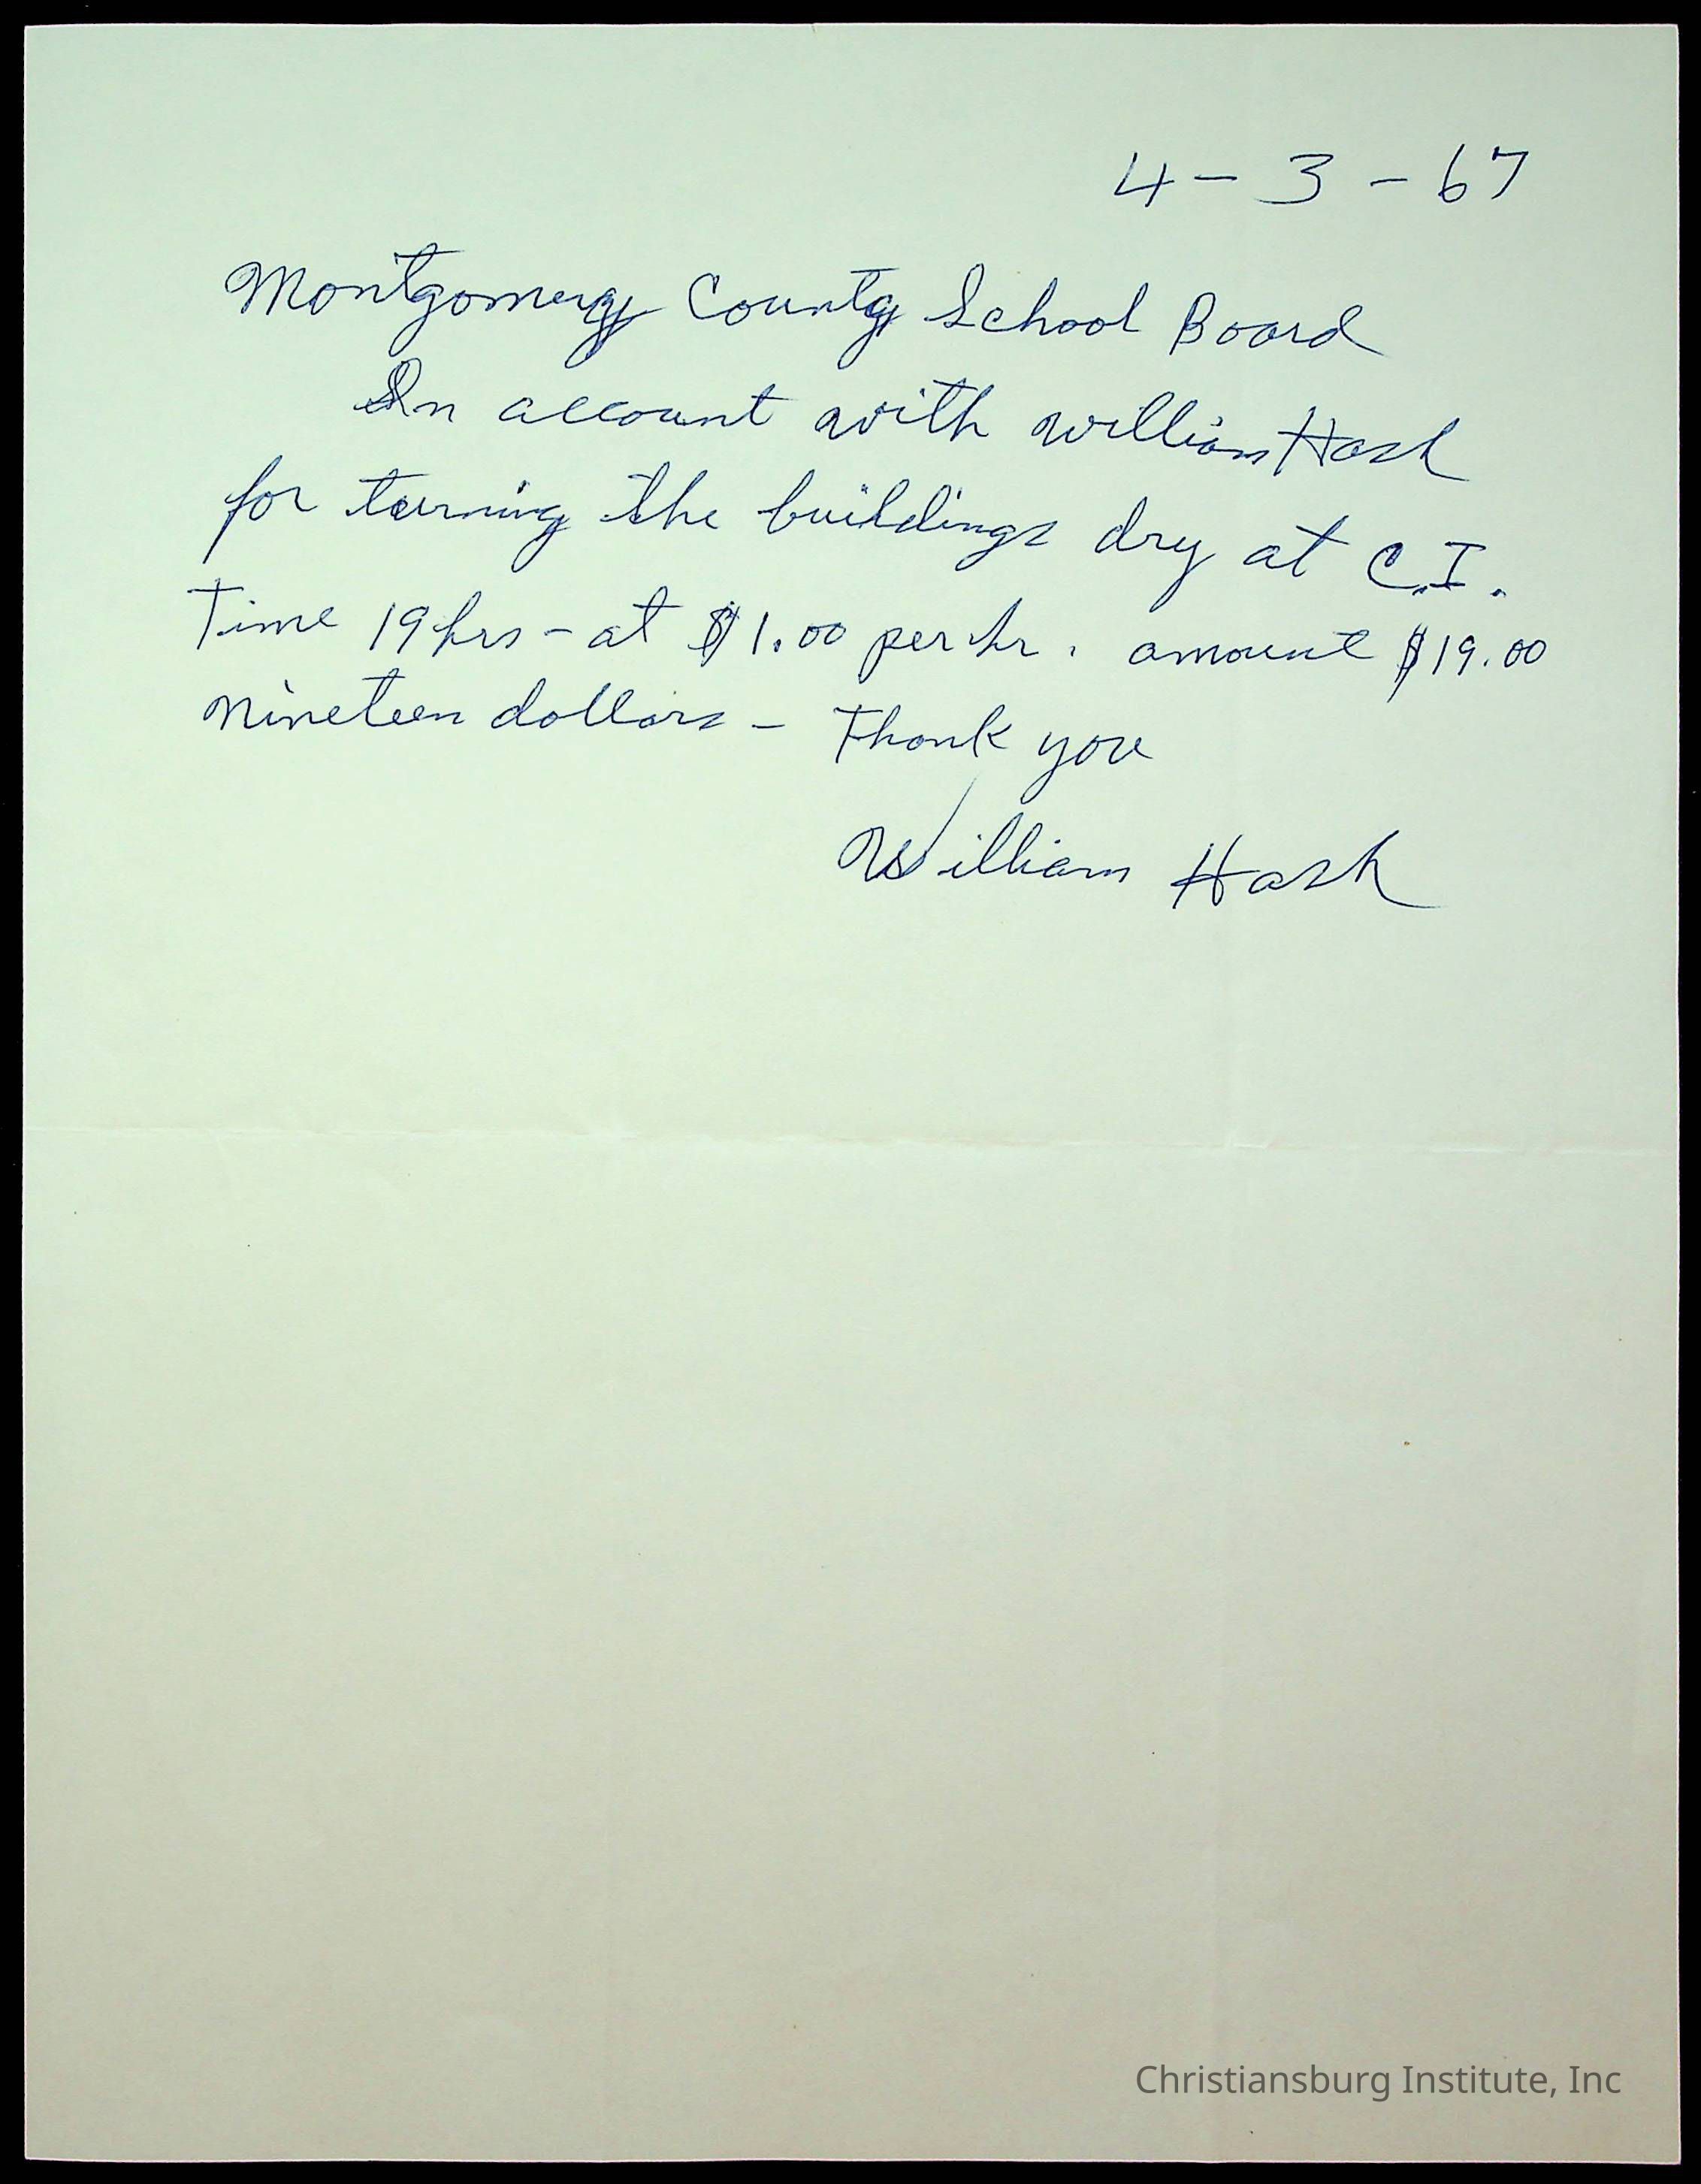 4-3-67
Montgomery County School Board
In account with William Hash
for turning the buildings dry at C.I.
Time 19 hrs - at $1.00 per hr. amount $19.00
nineteen dollars - Thank you
William Hash
Christiansburg Institute, Inc